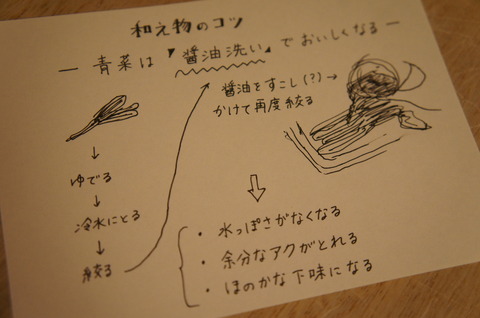 和え物のコツ
— 青菜は『醤油洗い』でおいしくなる —
醤油をすこし(?)→
かけて再度絞る
↓
ゆでる
↓
冷水にとる
↓
絞る
⇩
・水っぽさがなくなる
・余分なアクがとれる
・ほのかな下味になる